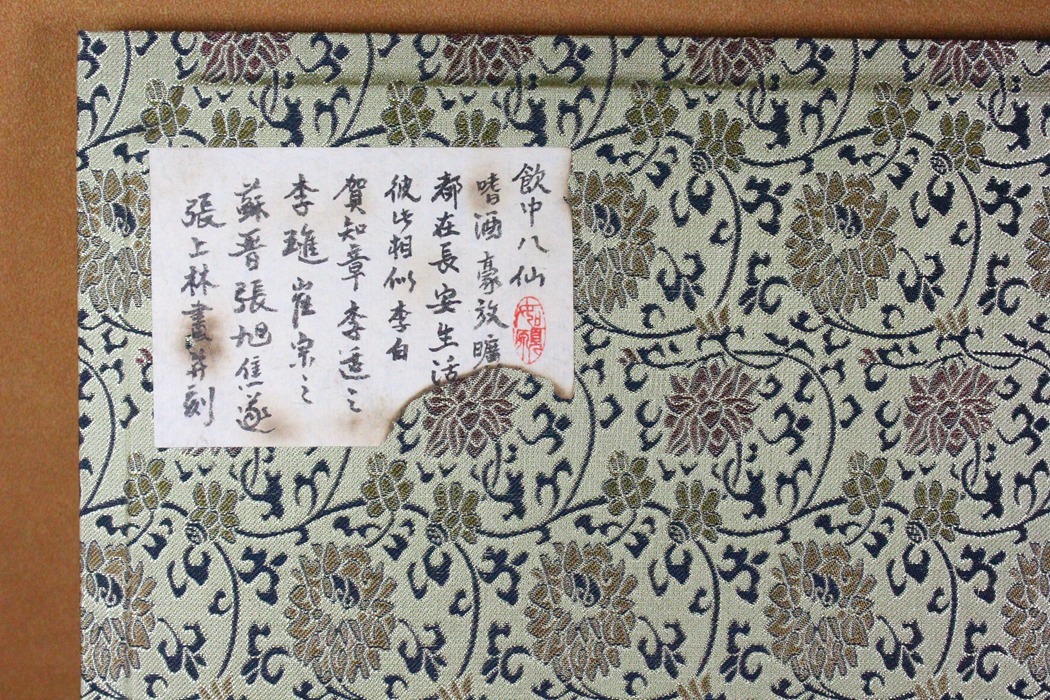 飲中八仙
如願
嗜酒豪放曠
都在長安生活
彼此相似李白
賀知章李適之
李璡崔宗之
蘇晉張旭焦遂
張上林畫并刻